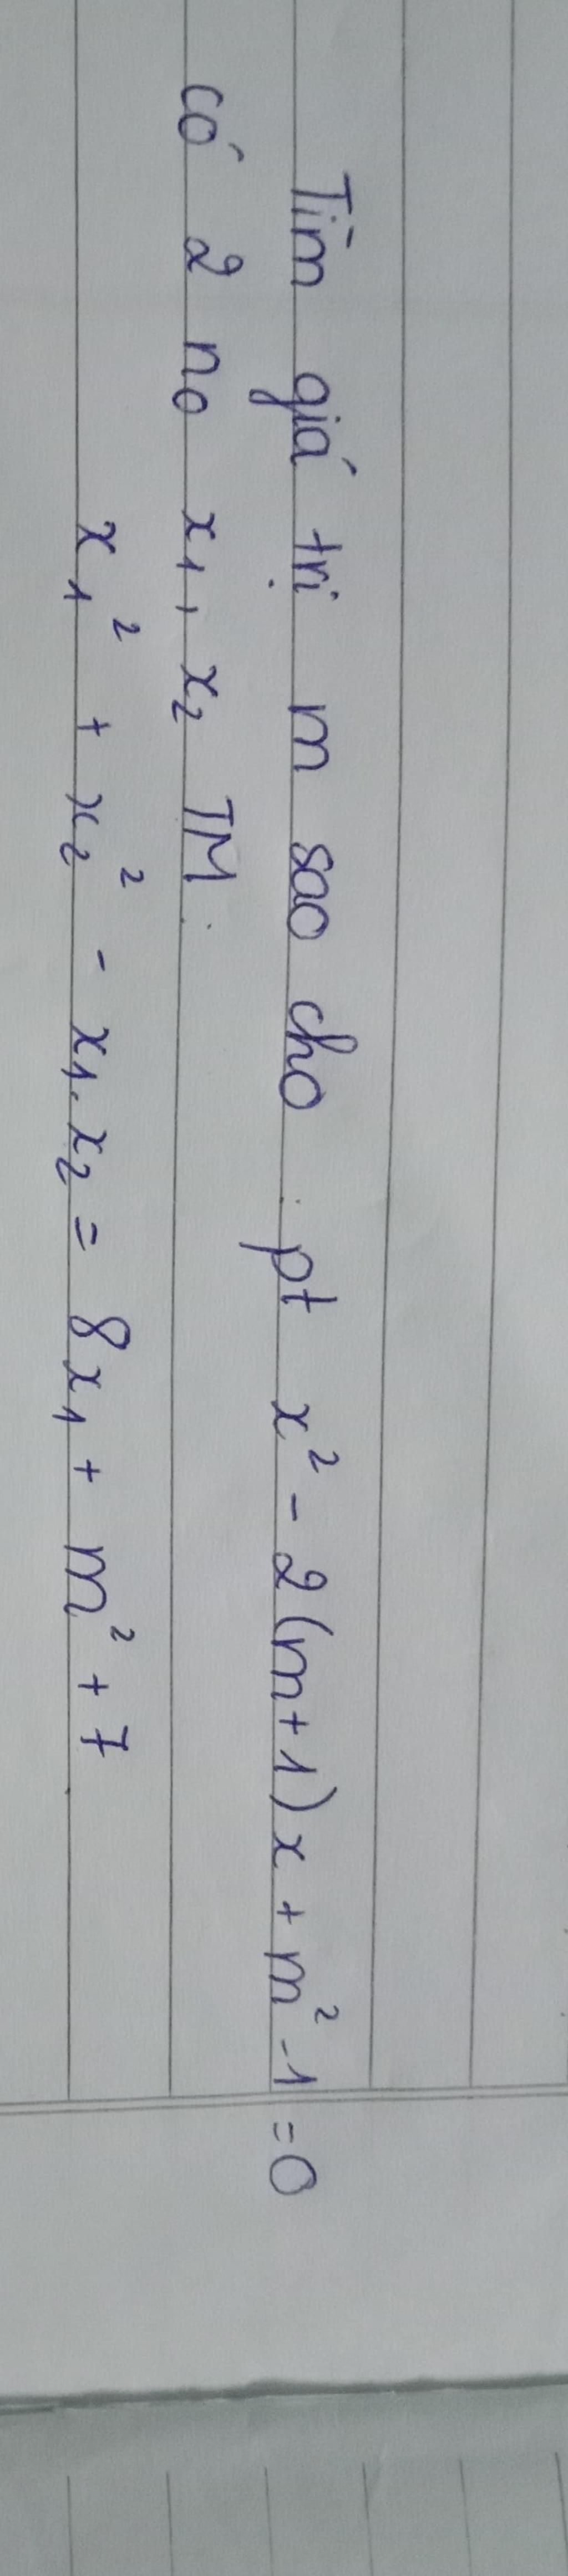 Tìm giá trị m sao cho pt x² - 2(m+1)x + m² - 1 = 0
có 2 no x₁, x₂ TM:
x₁² + x₂² - x₁.x₂ = 8x₁ + m² + 7